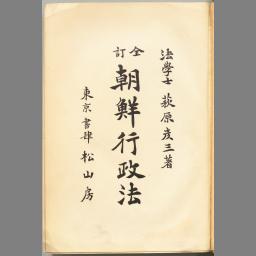 法學士 萩原彦三著
訂全
朝鮮行政法
東京書肆 松山房